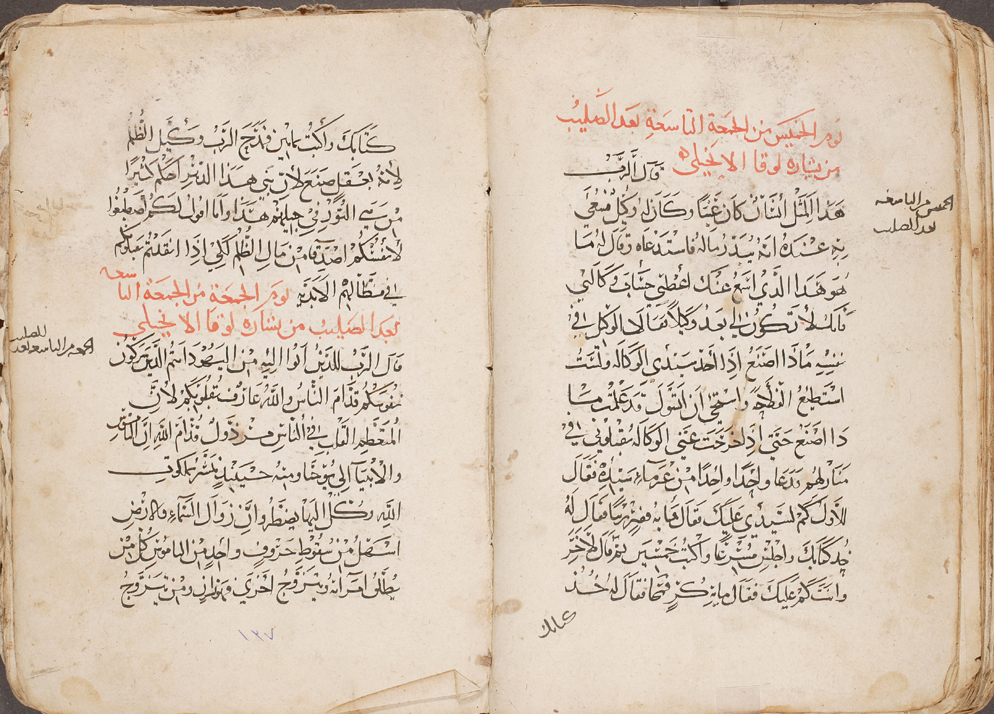 يوم الخميس من الجمعة التاسعة بعد الصليب
من بشارة لوقا الانجيلي قال الرب
هذا المثل انسان كان غنيا وكان له وكيل فسعي
به عنده انه يبذر ماله فاستدعاه وقال له ما
هو هذا الذي اسمع عنك اعطني حساب وكالتي
فانك لا تكون لي بعد وكيلا فقال الوكيل في
نفسه ماذا اصنع اذا اخذ سيدي الوكالة ولست
استطيع الفلاحة واستحي ان اتسول قد علمت ما
ذا اصنع حتي اذا خرجت عني الوكالة يقبلوني في
منازلهم ودعا واحدا واحدا من غرماء سيده فقال
للاول كم لسيدي عليك فقال ماية قفيز زيتا فقال له
خذ كتابك واجلس مسرعا واكتب خمسين ثم قال لاخر
وانت كم عليك فقال ماية كر قمحا فقال له خذ
كتابك
الخميس من التاسعه
بعد الصليب
كتابك واكتب ثمانين فمدح الرب وكيل الظلم
لانه بعقل صنع لان بني هذا الدهر احكم كثيرا
من بني النور في جيلهم هذا وانا اقول لكم اصطنعوا
لانفسكم اصدقا من مال الظلم لكي اذا انقلتم قبلوكم
في مظالهم الابدية يوم الجمعة من الجمعة التاسعه
بعد الصليب من بشارة لوقا الانجيلي
قال الرب للذين اتوا اليه من اليهود انتم الذين تزكون
نفوسكم قدام الناس والله عارف بقلوبكم لان
المتعظم الغالب في الناس مرذول قدام الله ان الناموس
والانبيا الي يوحنا ومنه حينيذ يبشر بملكوت
الله وكل اليها يضطر وان زوال السماء والارض
اسهل من سقوط حروف واحد من الناموس كل من
يطلق امراته ويتزوج اخري فهو زان ومن يتزوج
الجمعه من التاسعه بعد
الصليب
١٣٧